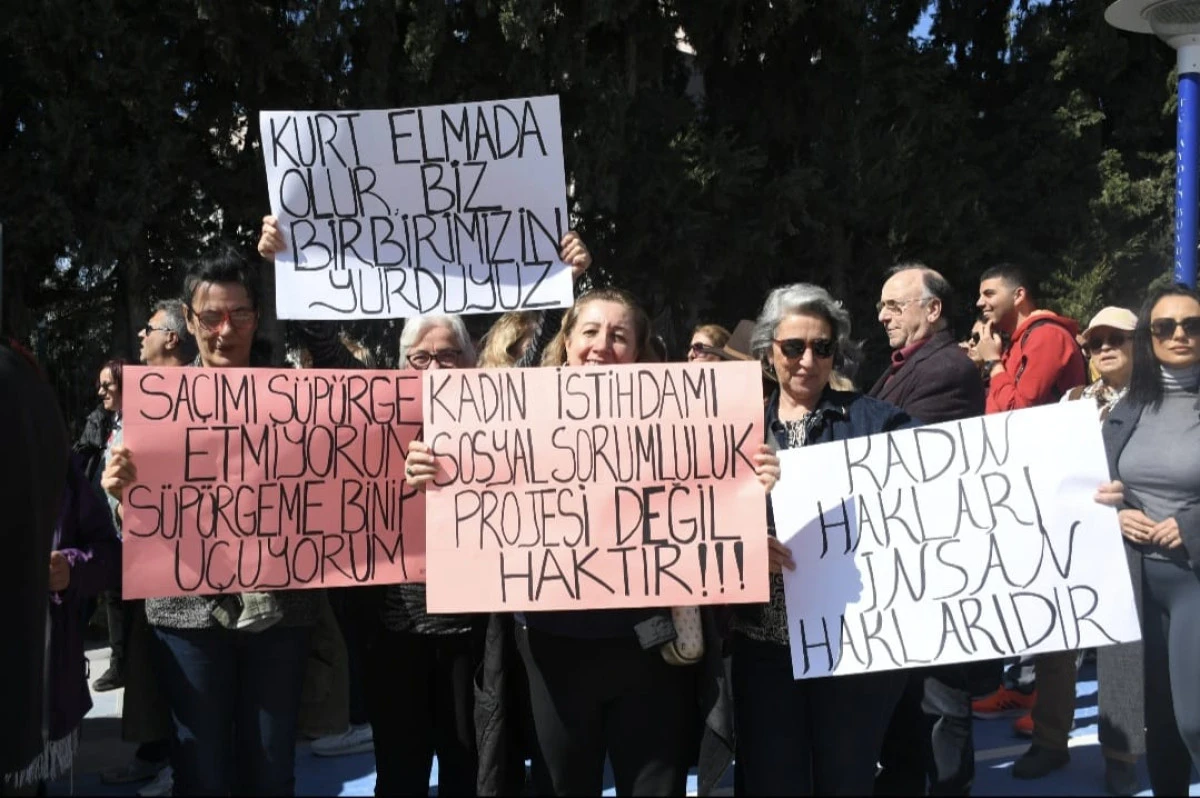 KURT ELMADA
OLUR, BİZ
BİRBİRİMİZİN
YURDUYUZ
SAÇIMI SÜPÜRGE
ETMİYORUM
SÜPÜRGEME BİNİP
UÇUYORUM
KADIN İSTİHDAMI
SOSYAL SORUMLULUK
PROJESİ DEĞİL
HAKTIR!!!
KADIN
HAKLARI
İNSAN
HAKLARIDIR